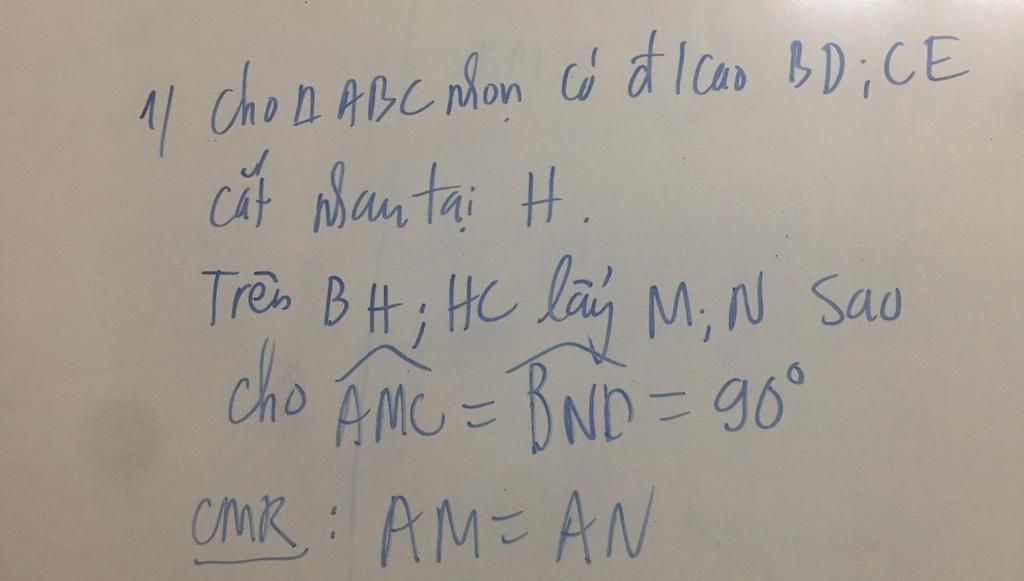 1/ Cho Δ ABC nhọn có đ/cao BD; CE
cắt nhau tại H.
Trên BH; HC lấy M; N sao
cho \widehat{AMC} = \widehat{BND} = 90°
CMR: AM = AN